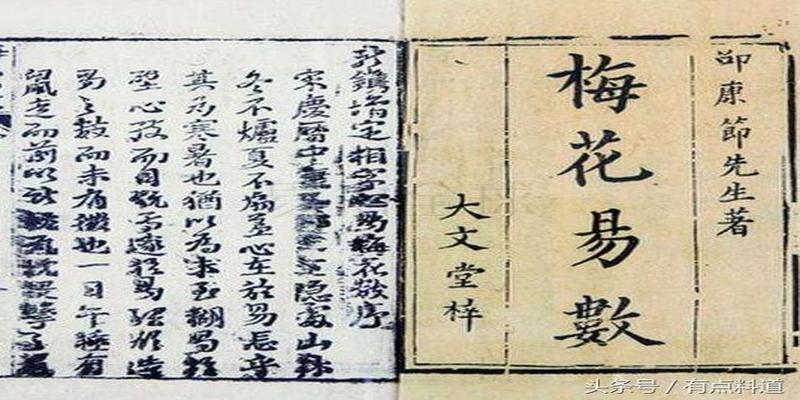 邵康節先生著
梅花易數
大文堂梓
新鐫增定相字心易梅花數序
宋慶曆中隱處山林
冬不爐夏不扇蓋心在於易忘乎
其為寒暑也猶以為未至糊易於
壁心致而目玩焉邃於易理欲造
易之數而未有徵也一日午睡有
鼠走而前以枕投擊之
头条号 / 有点料道